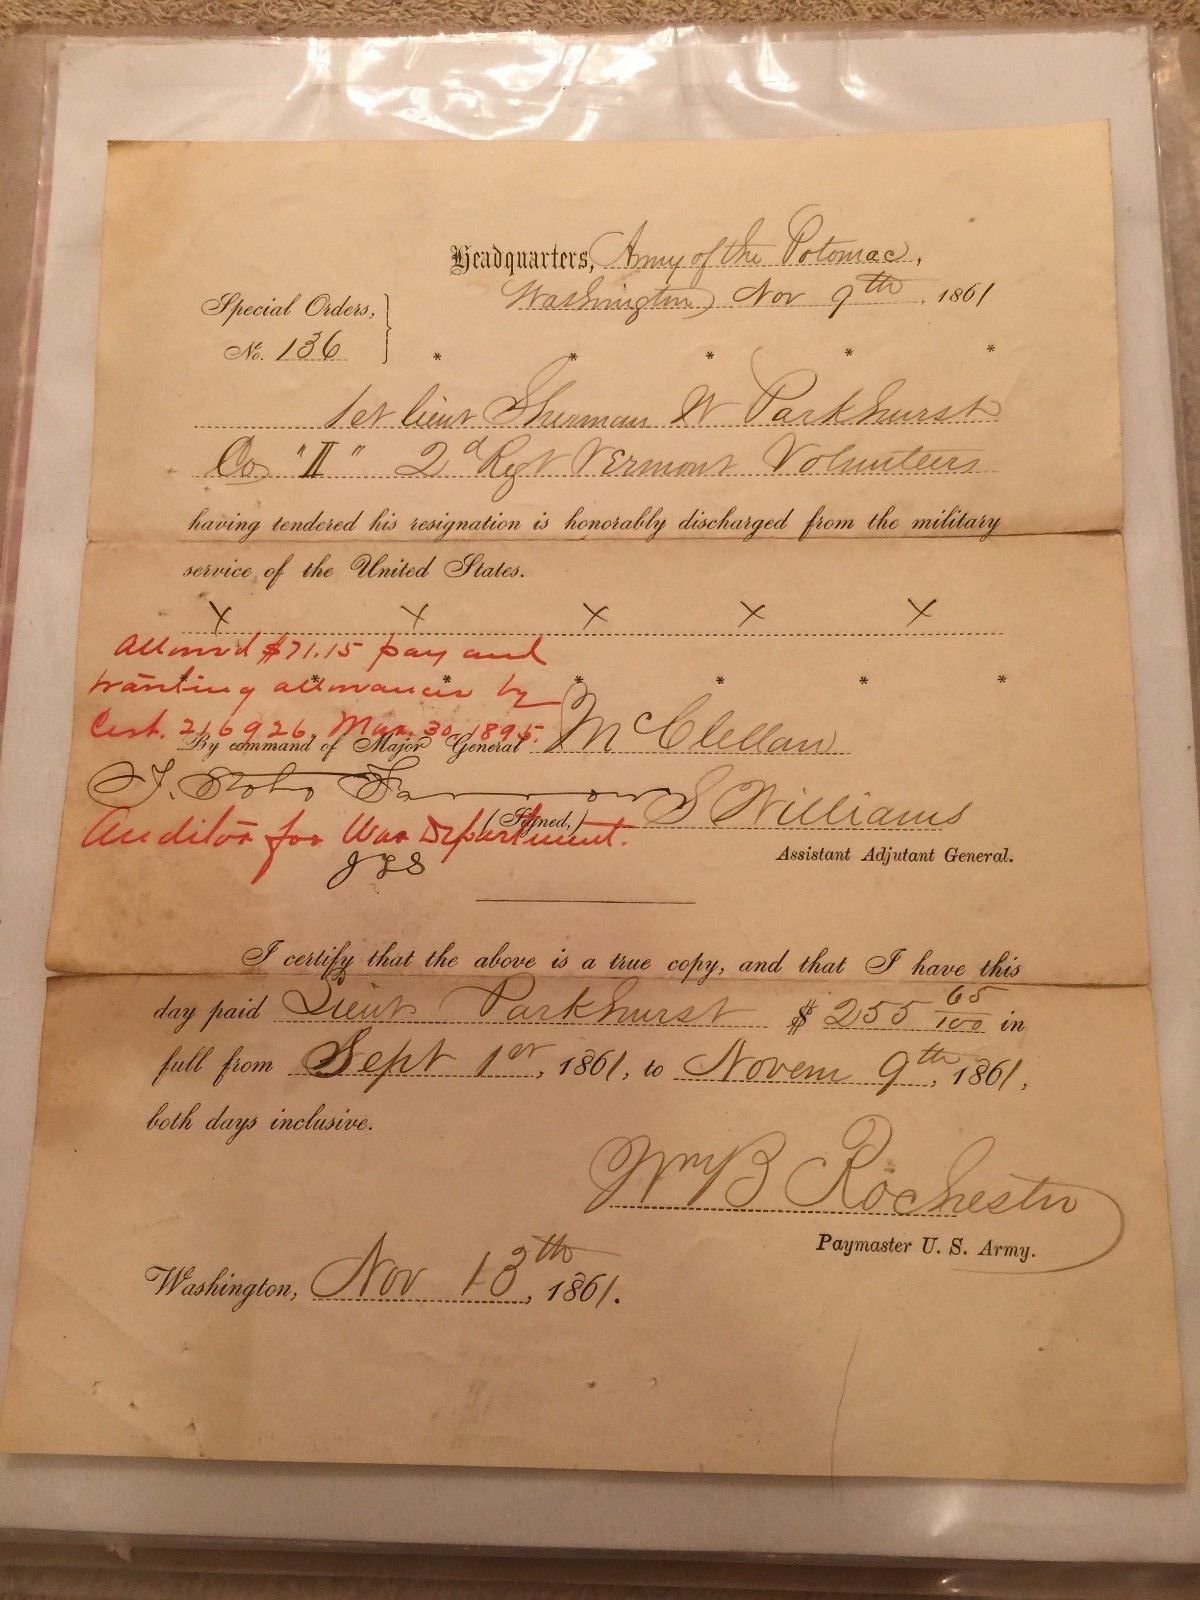 Headquarters, Army of the Potomac,
Washington Nov 9th, 1861
Special Orders,
No. 136
* * * * *
1st Lieut Sherman W Parkhurst
Co "II" 2d Regt Vermont Volunteers
having tendered his resignation is honorably discharged from the military
service of the United States.
X X X X X
Allowed $71.15 pay and
* * * * * *
allowances by
Cert. 216926, Mar. 30, 1895.
By command of Major General McClellan
(Signed,) S Williams
Auditor for War Department.
Assistant Adjutant General.
I certify that the above is a true copy, and that I have this
day paid Lieut Parkhurst $ 255 65/100 in
full from Sept 1st, 1861, to Novem 9th, 1861,
both days inclusive.
Wm B Rochester
Paymaster U. S. Army.
Washington, Nov 13th, 1861.